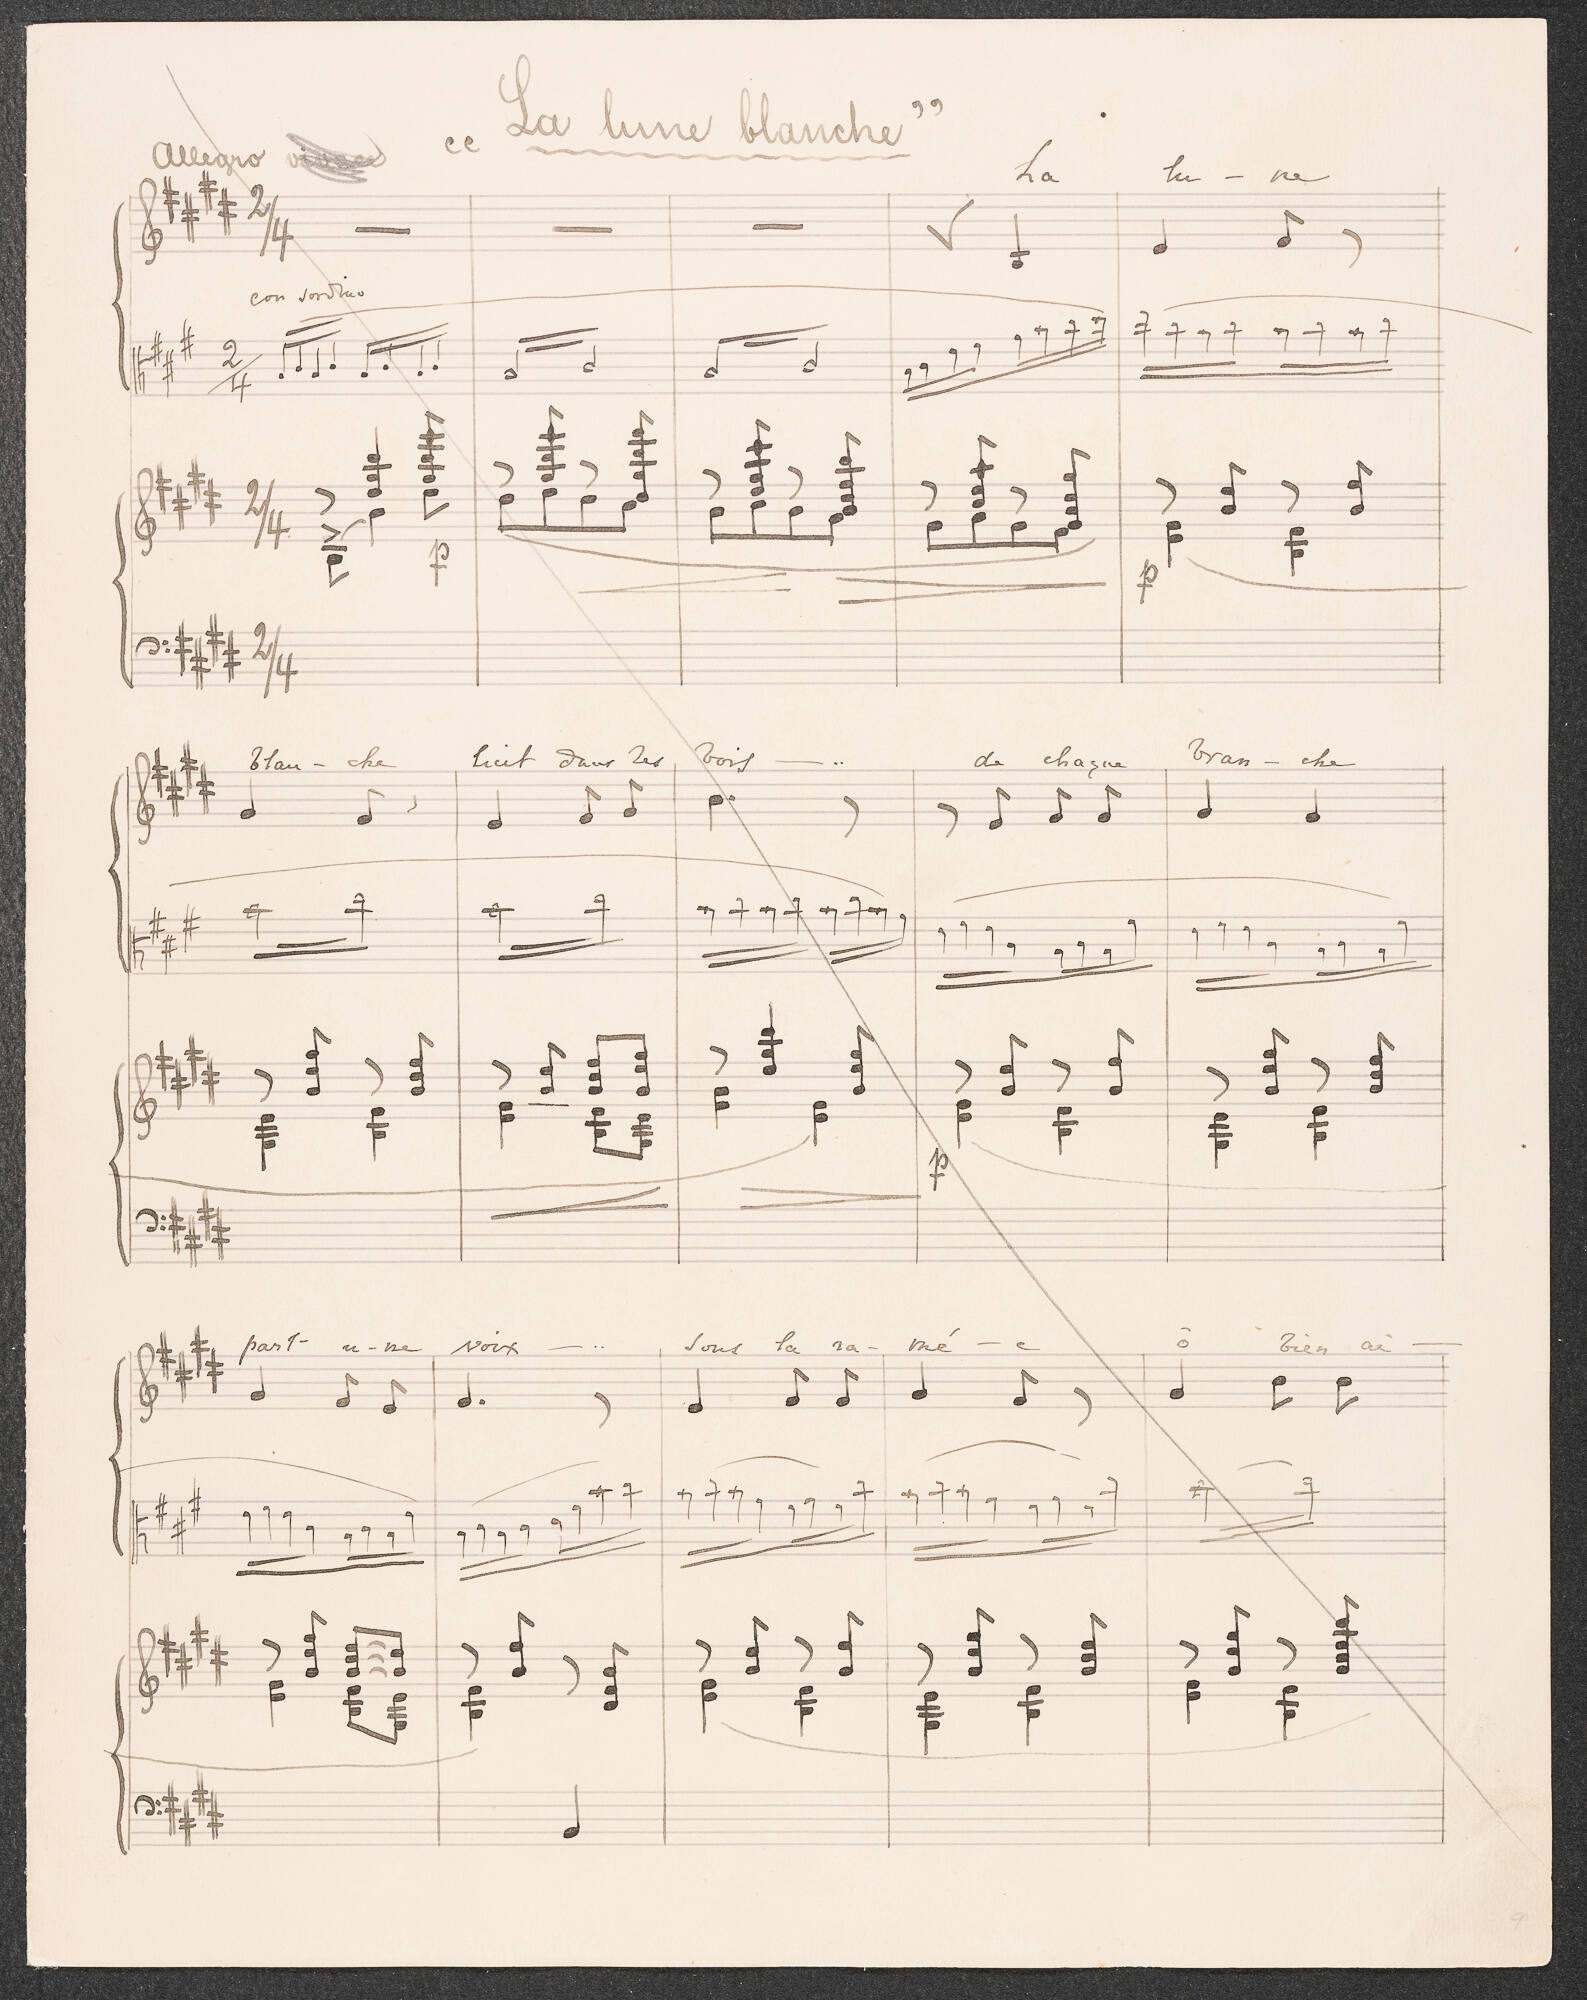 “La lune blanche”
Allegro
La lu - ne
2/4
con sordino
2/4
2/4
p p
2/4
blan - che luit dans les bois — .. de chaque bran - che
p
part u - ne voix — .. sous la ra - mé - e ô bien ai —